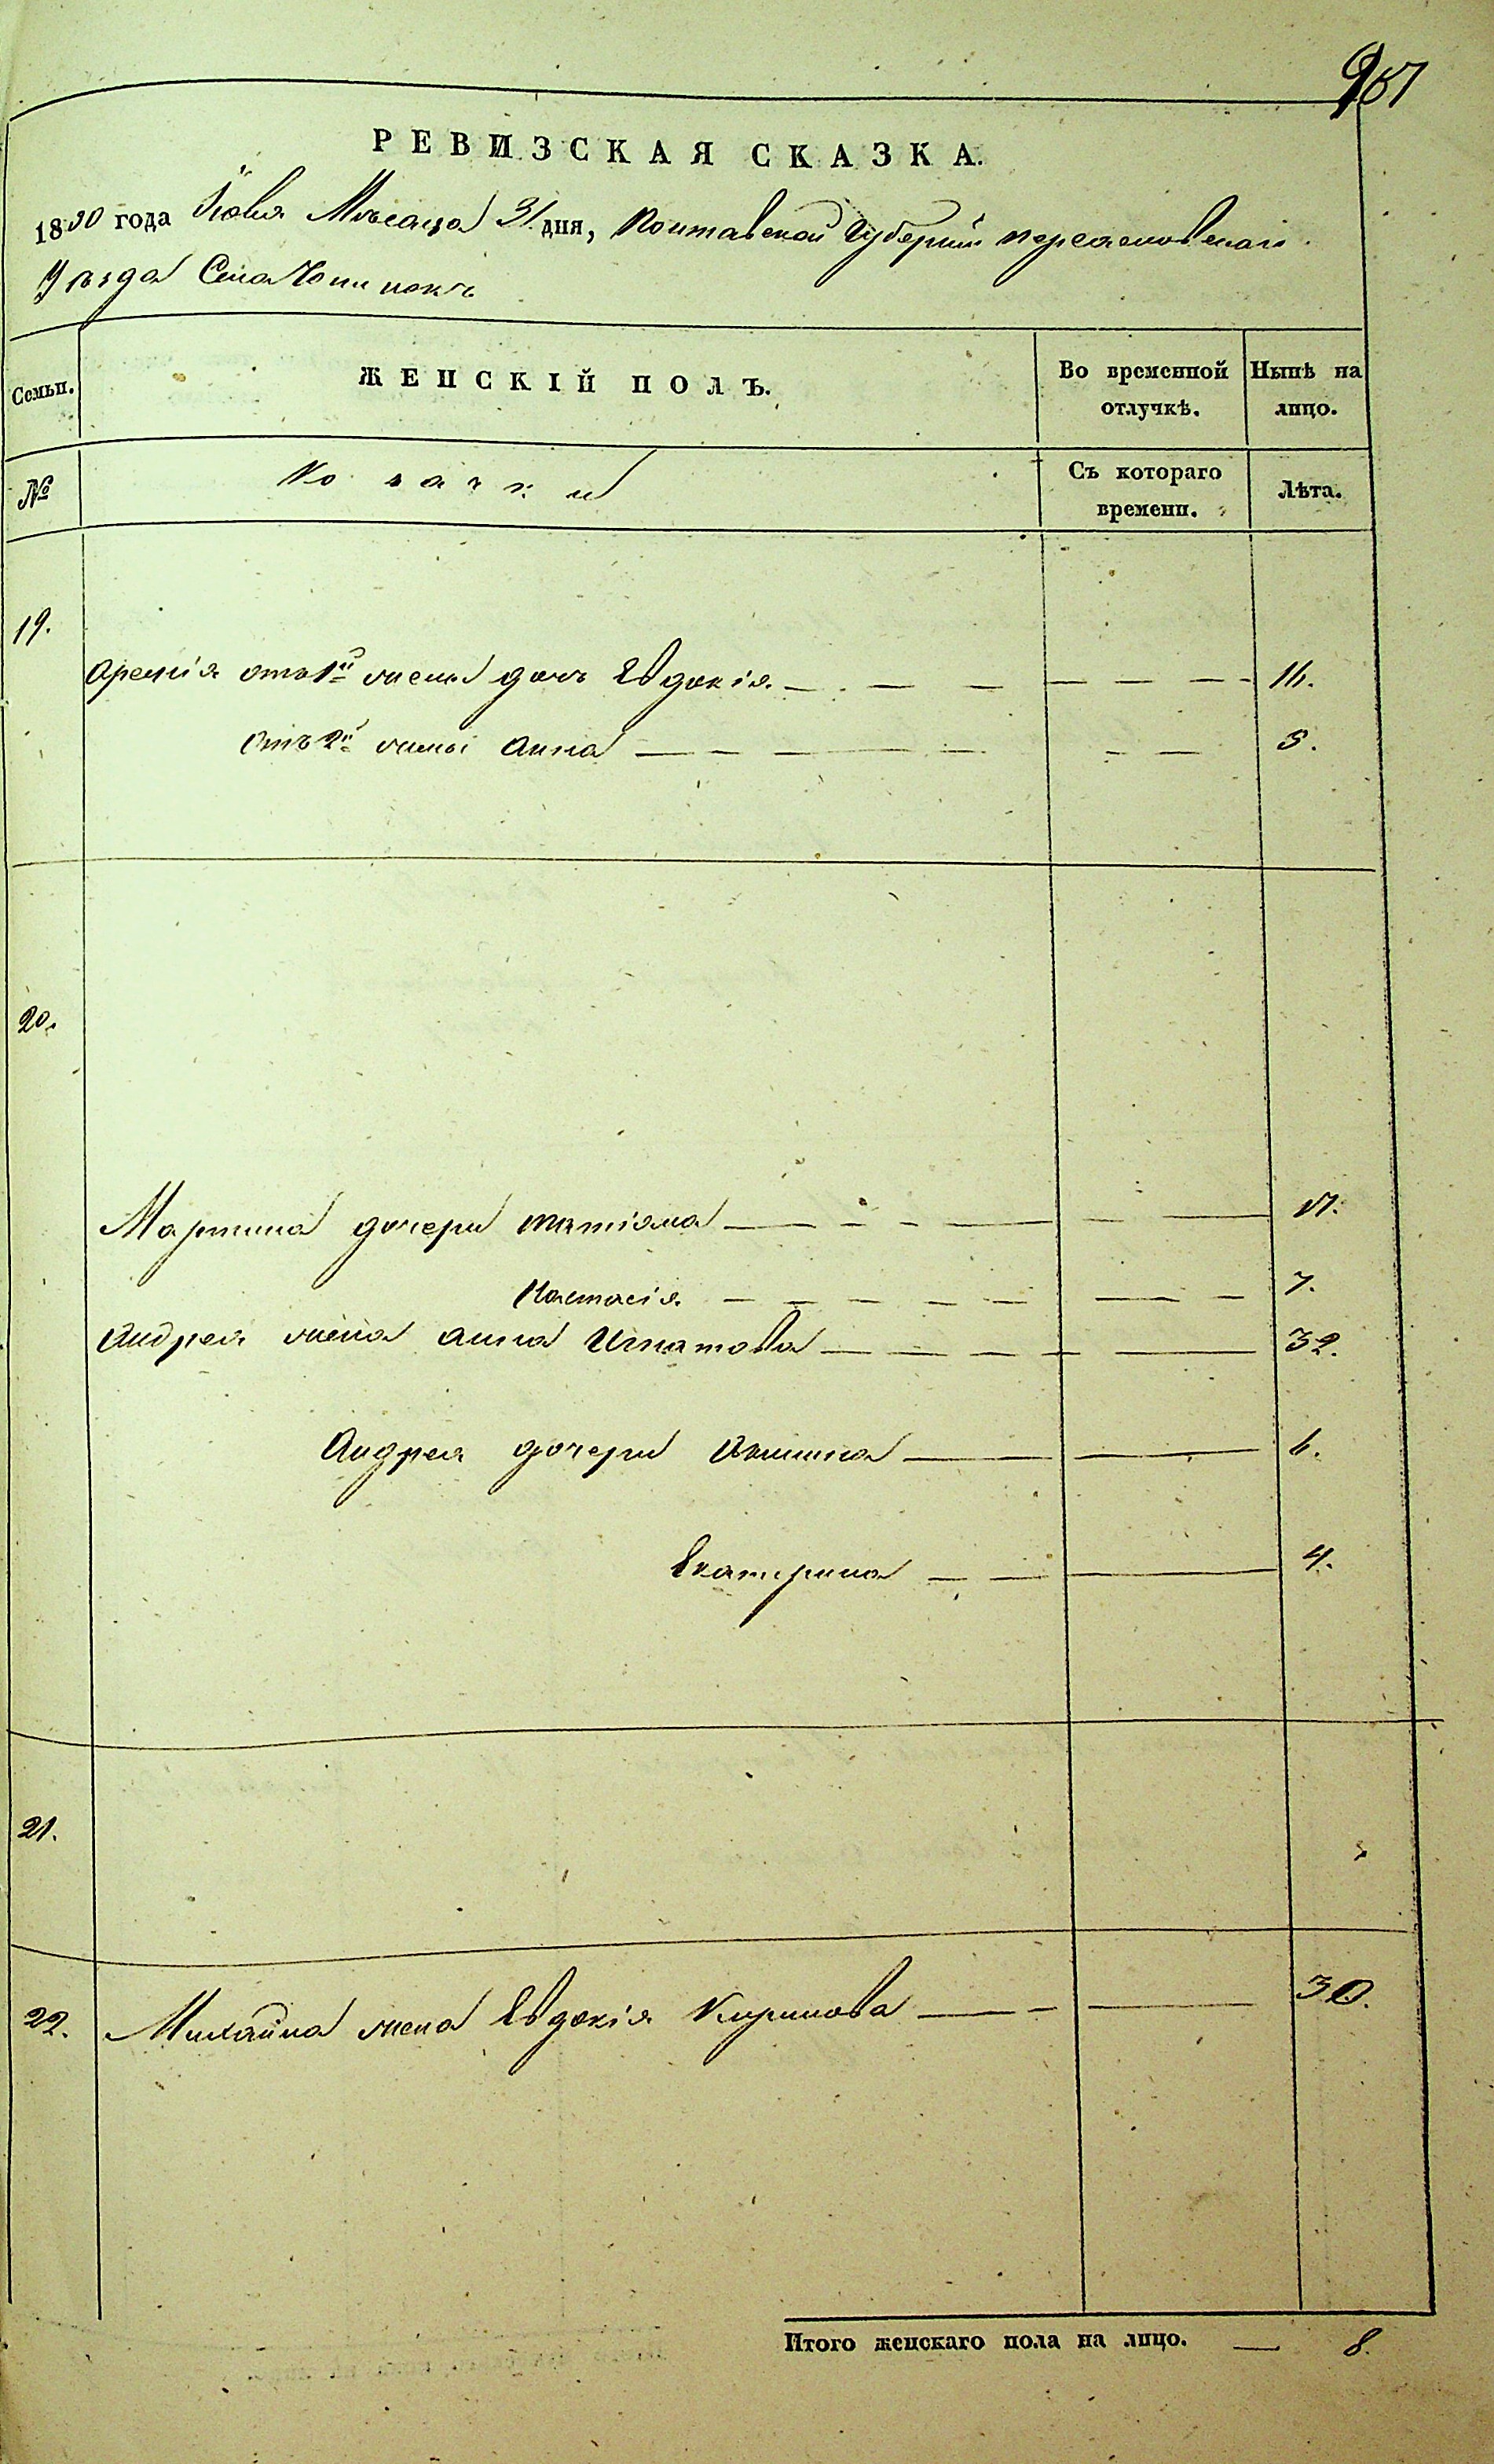 РЕВИЗСКАЯ СКАЗКА.
года Мѣсяца 31 дня, Полтавской Губерніи Переяславскаго
Уѣзда Села
Семьи. ЖЕНСКІЙ ПОЛЪ. Во временной отлучкѣ. Нынѣ на лицо.
№ Козачки Съ котораго времени. Лѣта.
19.
отъ 1й жены дочь Евдокія — — — — — — 16.
Отъ 2й жены Анна — — — — — — 5.
20.
Мартина дочери Татіяна — — — — — —
Настасія — — — — — — 7.
Андрея жена Анна Игнатова — — — — — 32.
Андрея дочери Акилина — — 6.
Екатерина — — — 4.
21.
22. Михайла жена Евдокія Кирилова — — — 30.
Итого женскаго пола на лицо. — 8.